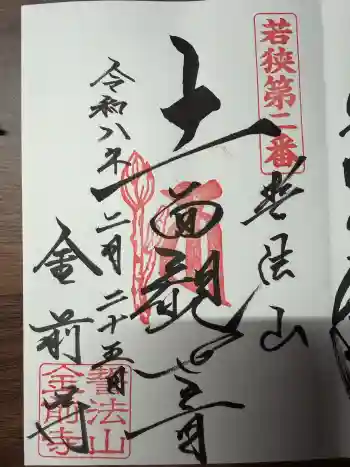 若狭第二番
誓法山
十一面観世音
令和八年二月二十五日
金前寺
誓法山
金前寺